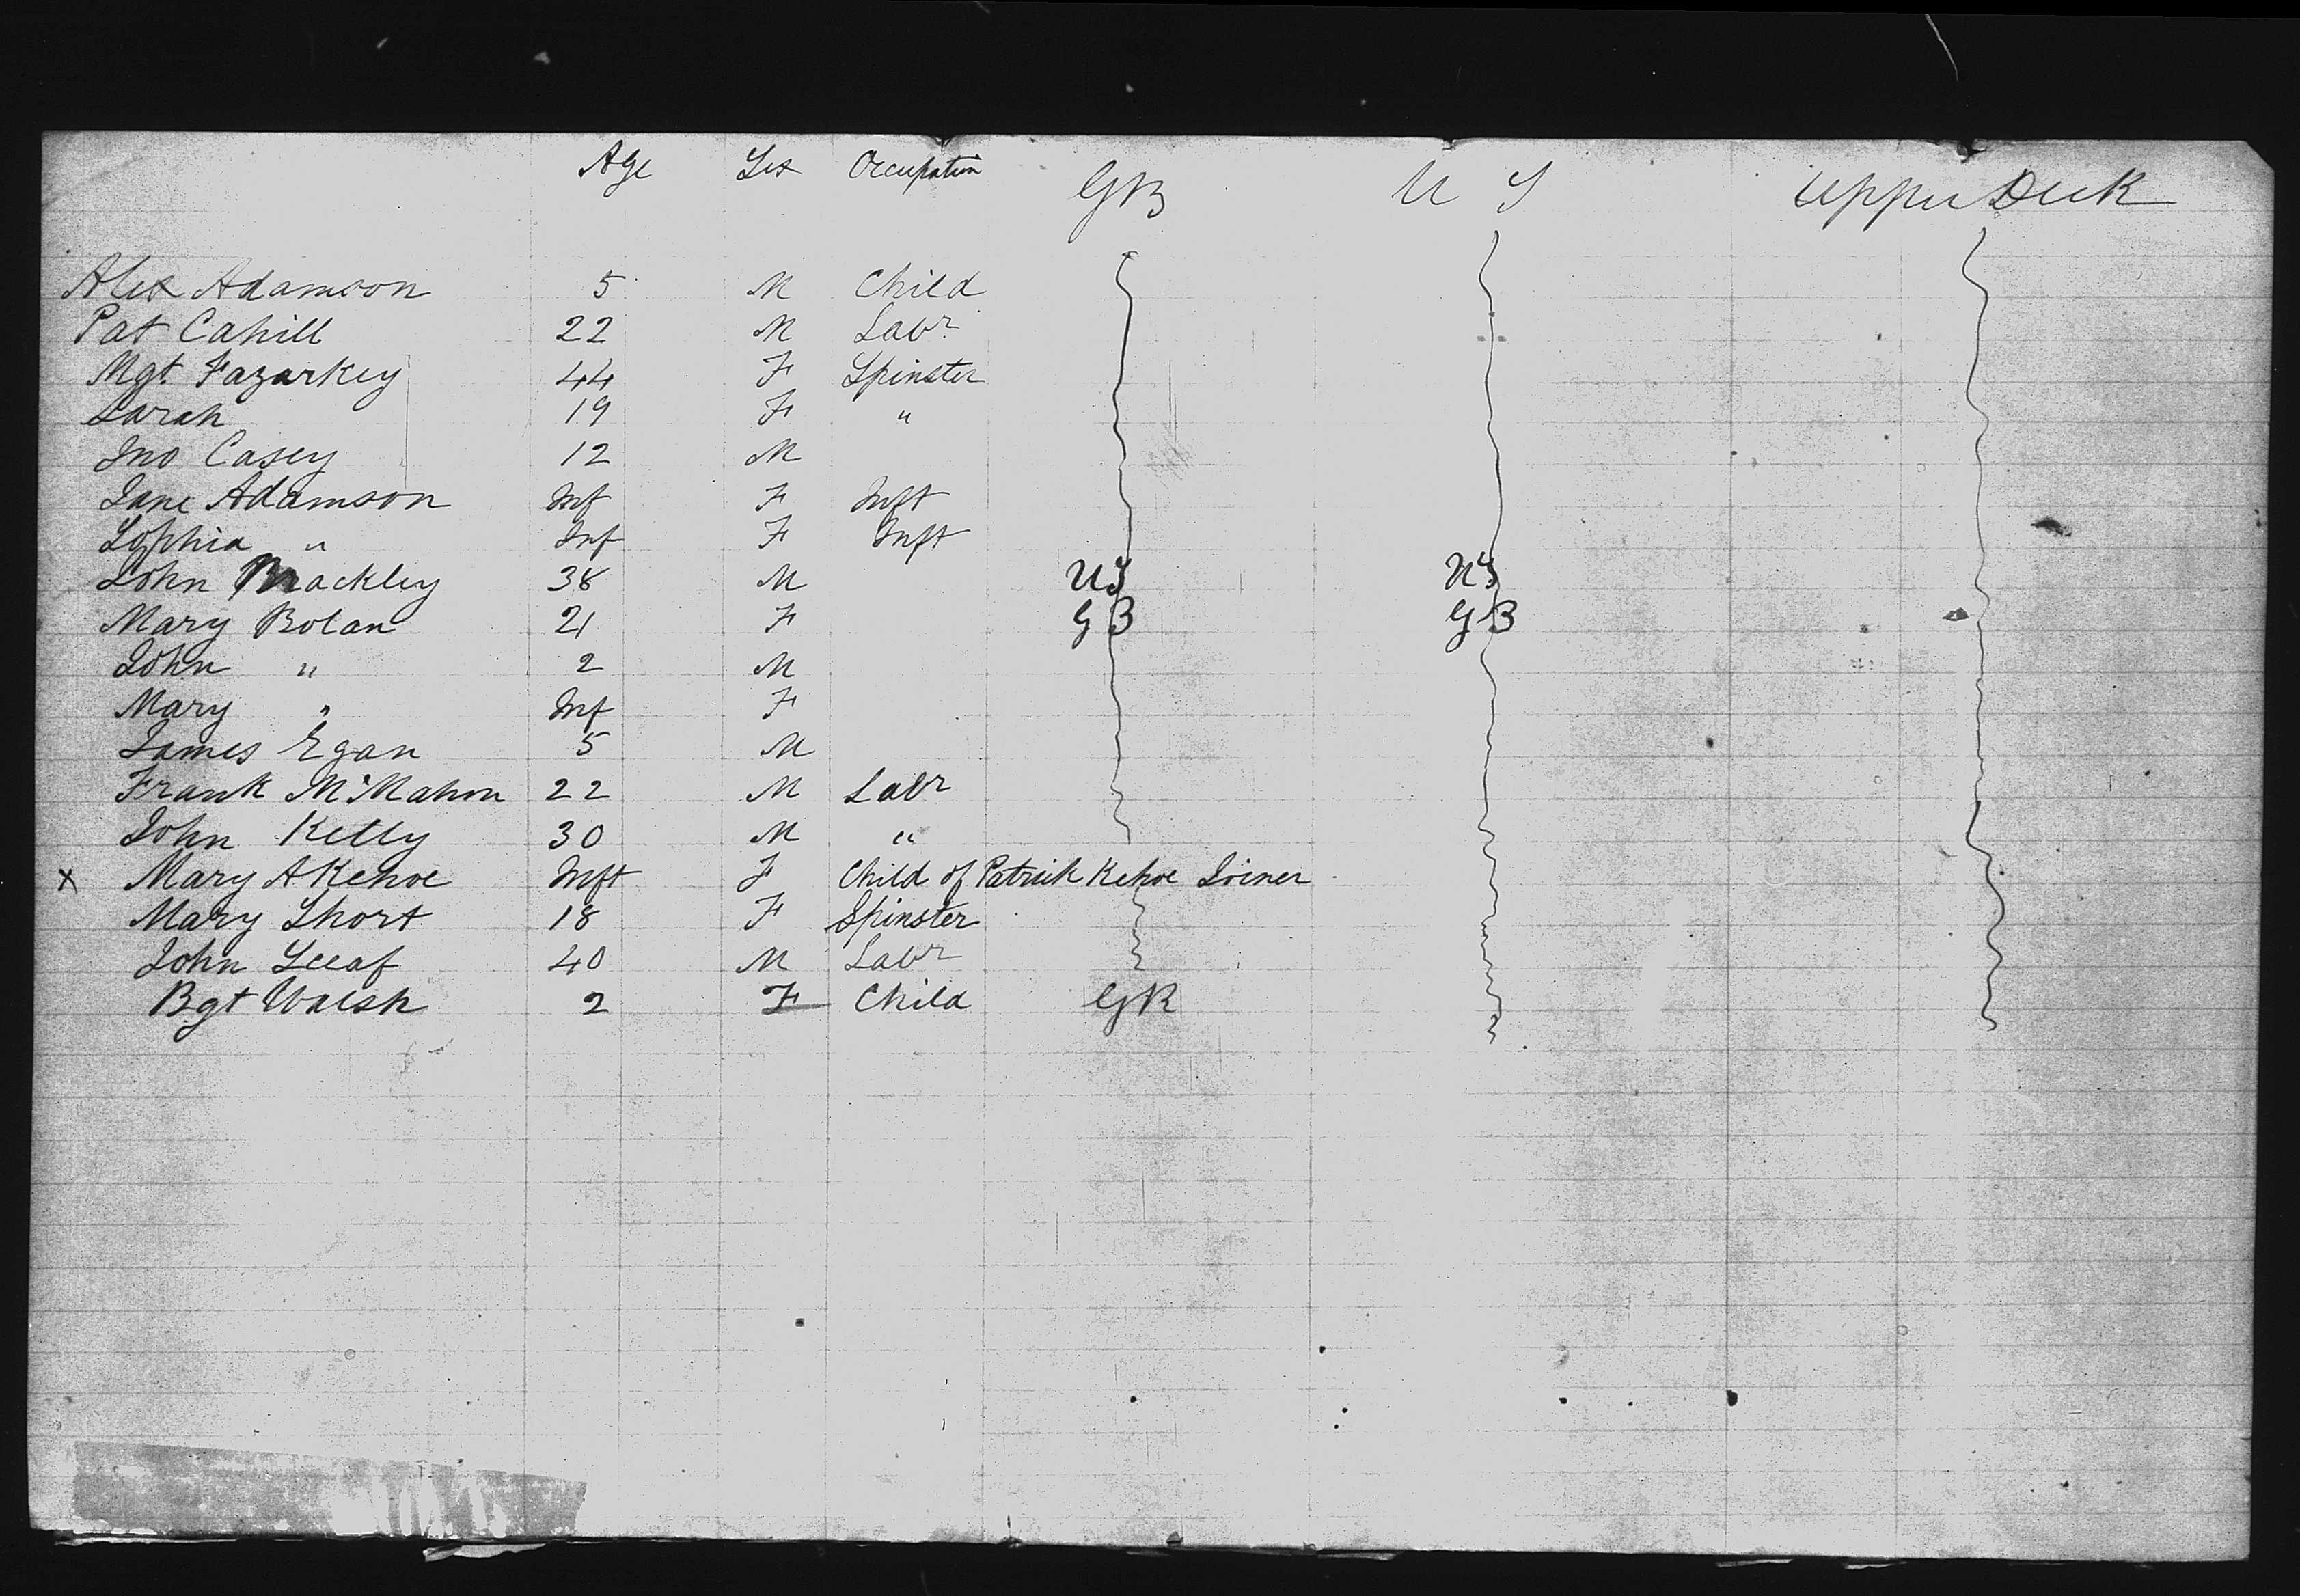 Age Sex Occupation GB U S Upper Deck
Alex Adamson 5 M Child
Pat Cahill 22 M Labr
Mgt. Fazarkey 44 F Spinster
Sarah 19 F "
Jno Casey 12 M
Jane Adamson Inf F Inft
Sophia " Inf F Inft
John Brackley 38 M US US
Mary Bolan 21 F GB GB
John " 2 M
Mary " Inf F
James Egan 5 M
Frank McMahon 22 M Labr
John Kelly 30 M "
x Mary A Kehoe Inft F Child of Patrick Kehoe Joiner
Mary Short 18 F Spinster
John 40 M Labr
Bgt Walsh 2 F Child GB